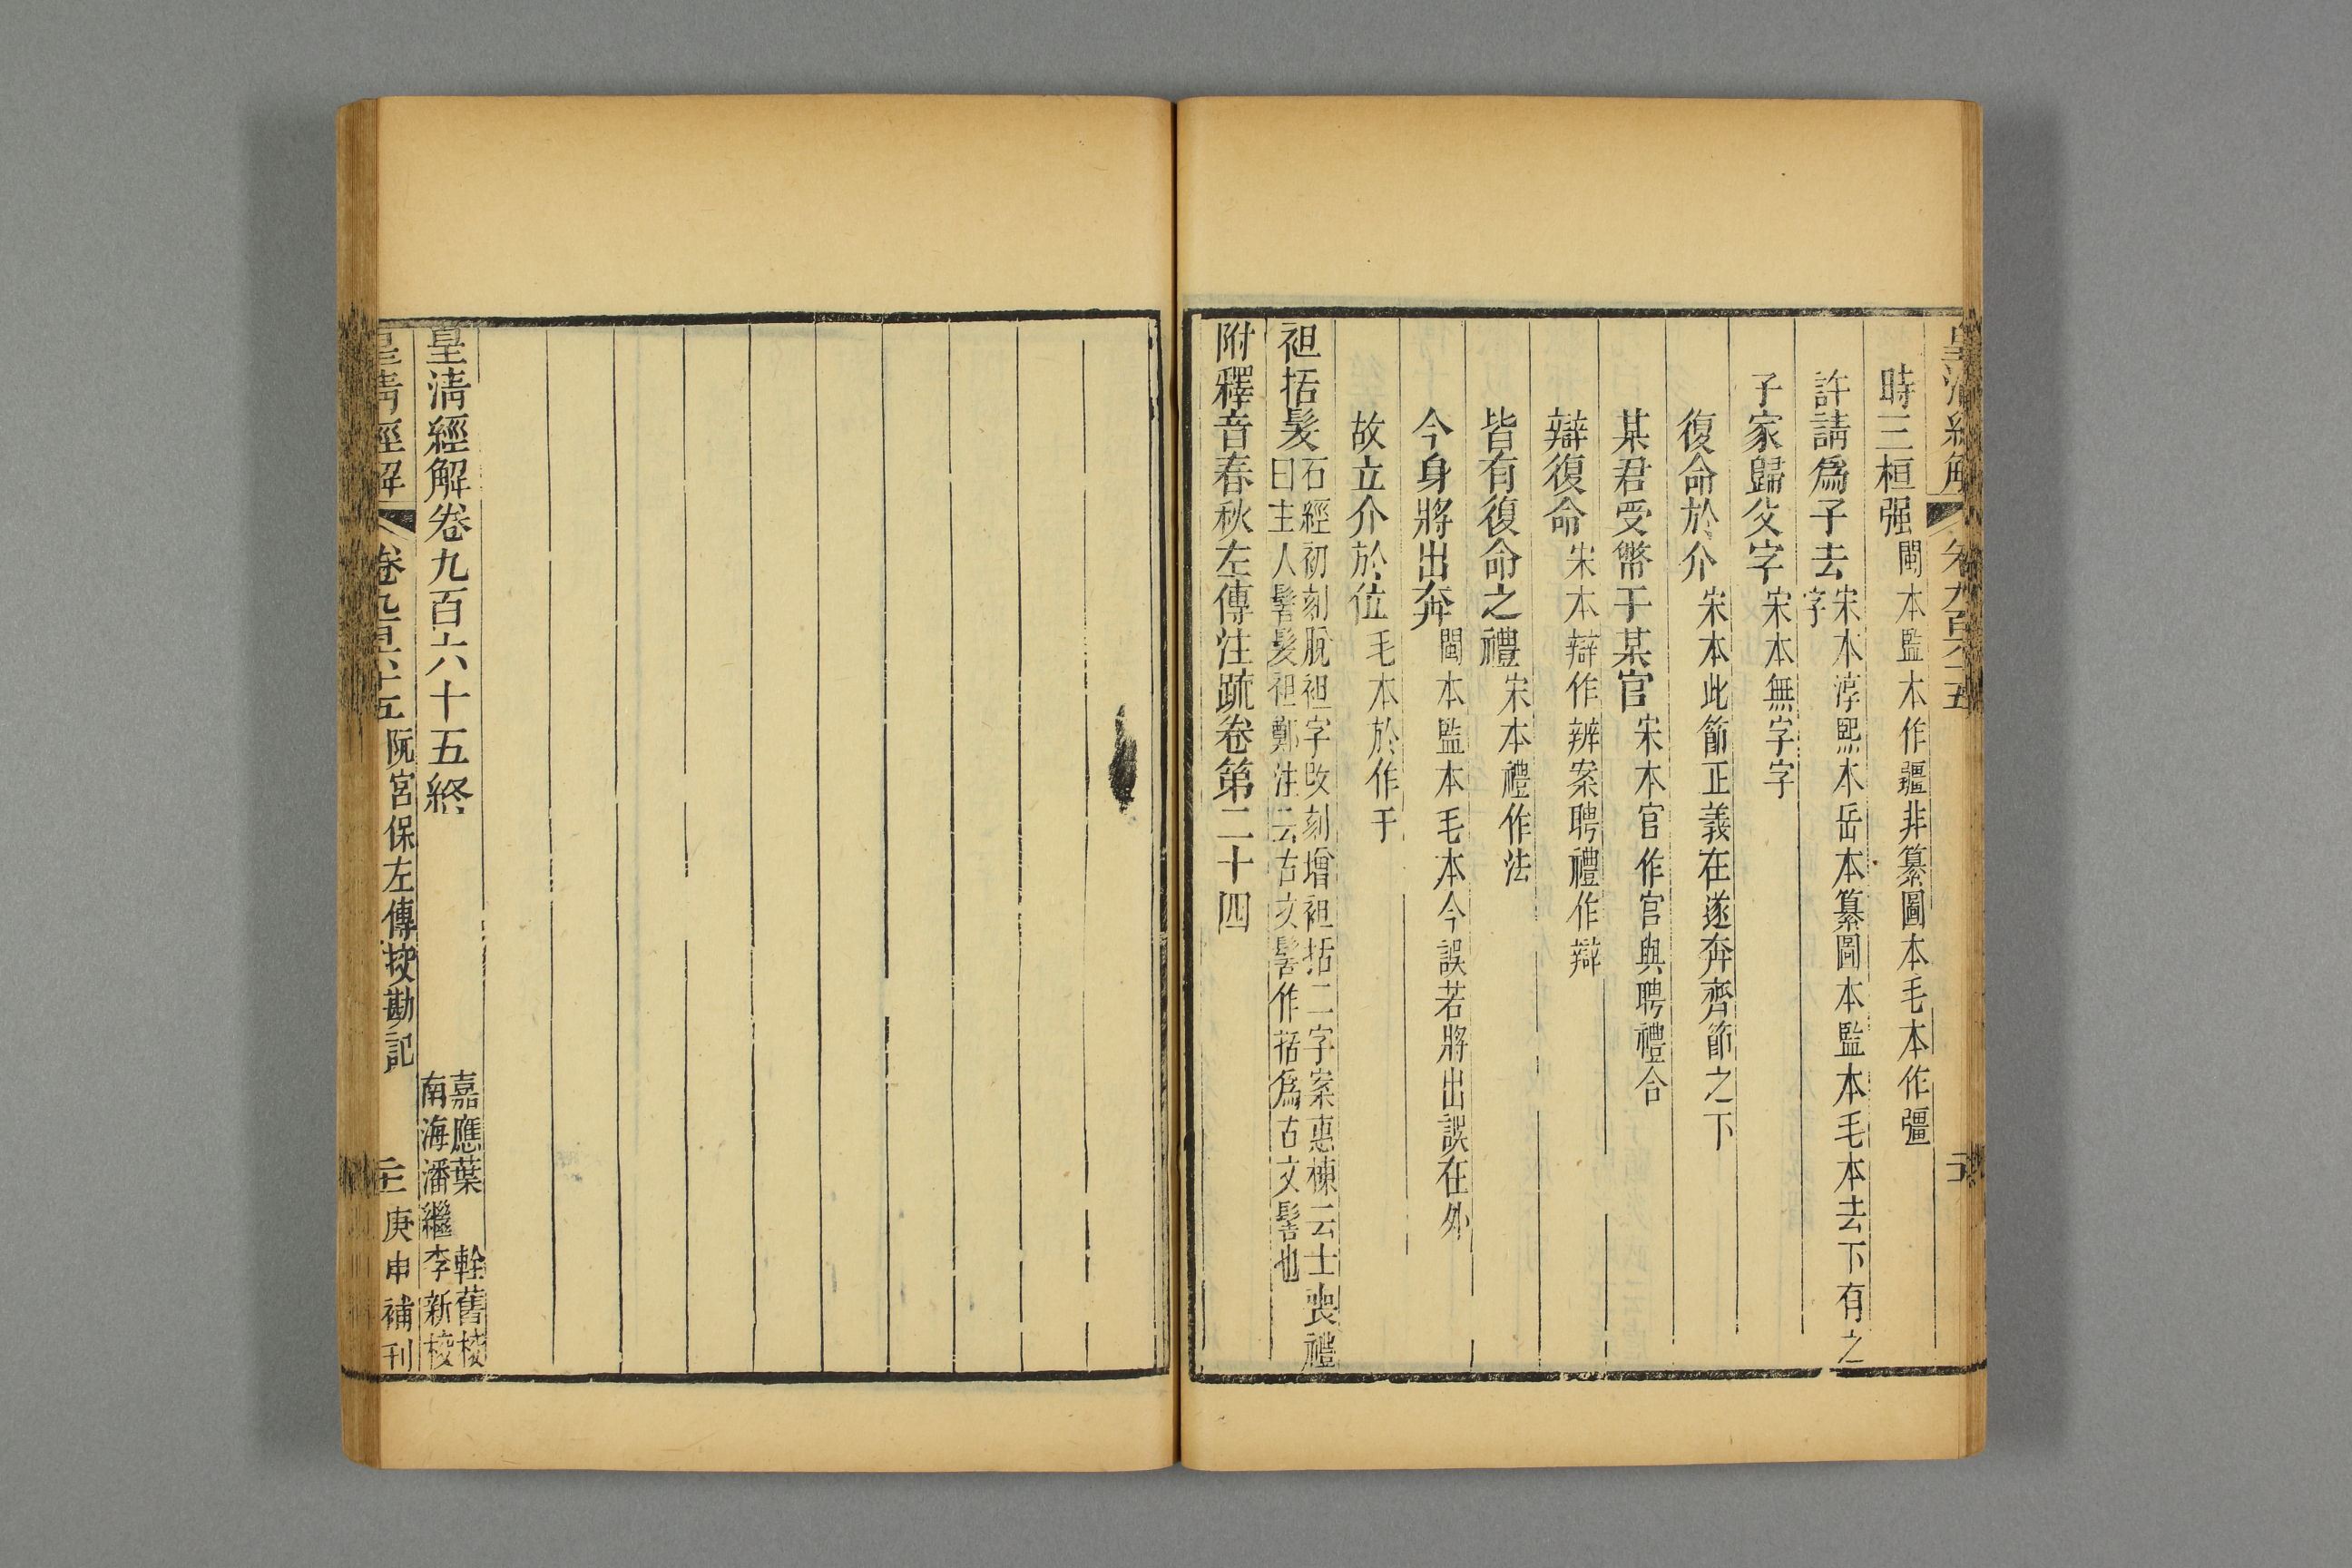 皇清經解 卷九百六十五
時三桓强閩本監本作疆非纂圖本毛本作彊
許請爲子去宋本淳熙本岳本纂圖本監本毛本去下有之
字
子家歸父字宋本無字字
復命於介宋本此節正義在遂奔齊節之下
某君受幣于某官宋本官作宮與聘禮合
辯復命宋本辯作辨案聘禮作辯
皆有復命之禮宋本禮作法
今身將出奔閩本監本毛本今誤若將出誤在外
故立介於位毛本於作于
袒括髮石經初刻脫袒字改刻增袒括二字案惠棟云士喪禮
曰主人髻髮袒鄭注云古文髻作括爲古文髻也
附釋音春秋左傳注疏卷第二十四
皇清經解卷九百六十五終
嘉應葉 輇舊校
南海潘繼李新校
皇清經解 卷九百六十五 阮宮保左傳挍勘記 庚申補刊